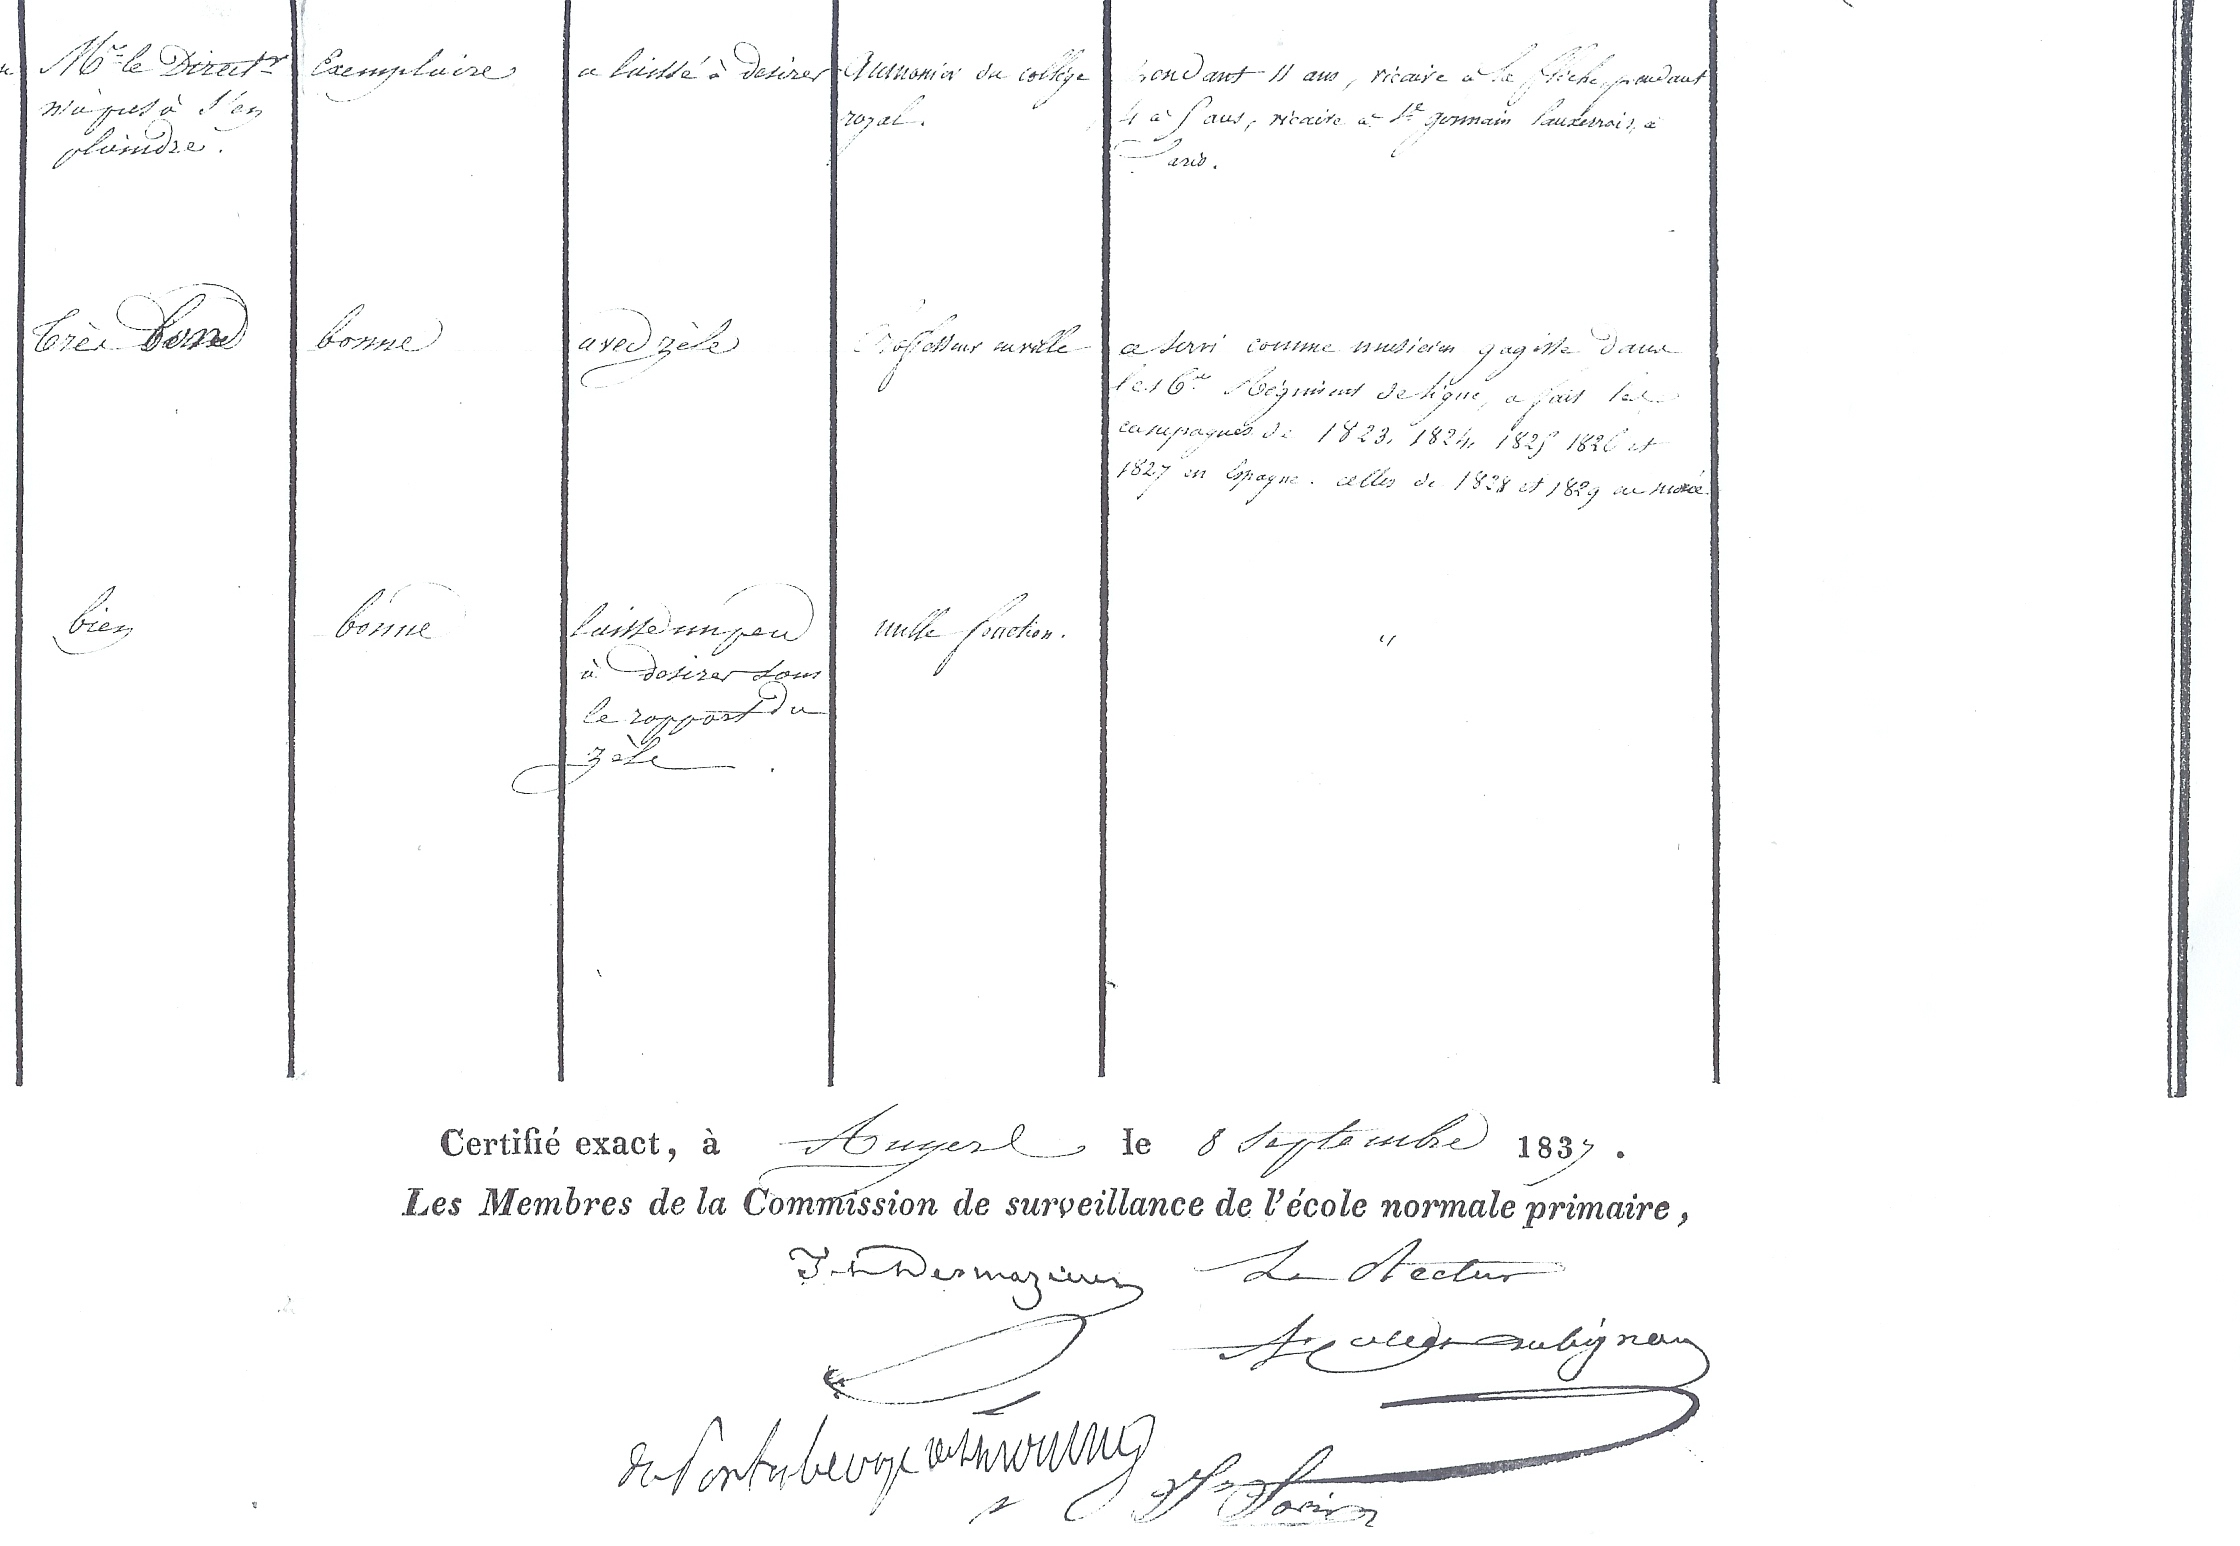 Mr le Directr
n'a qu'à s'en
plaindre.
Exemplaire
a laissé à desirer
Aumonier du collège
royal.
pendant 11 ans, vicaire à la flèche pendant
4 à 5 ans, vicaire à St germain l'auxerrois, à
Paris.
très bonne
bonne
avec zèle
Professeur en ville
a servi comme musicien gagiste dans
le 16me Régiment de ligne, a fait les
campagnes de 1823, 1824, 1825 1826 et
1827 en Espagne. celles de 1828 et 1829 en morée
bien
bonne
laisse un peu
à desirer sous
le rapport du
zèle
nulle fonction.
"
Certifié exact, à Angers le 8 Septembre 1837.
Les Membres de la Commission de surveillance de l'école normale primaire,
Desmazieres
Le Recteur